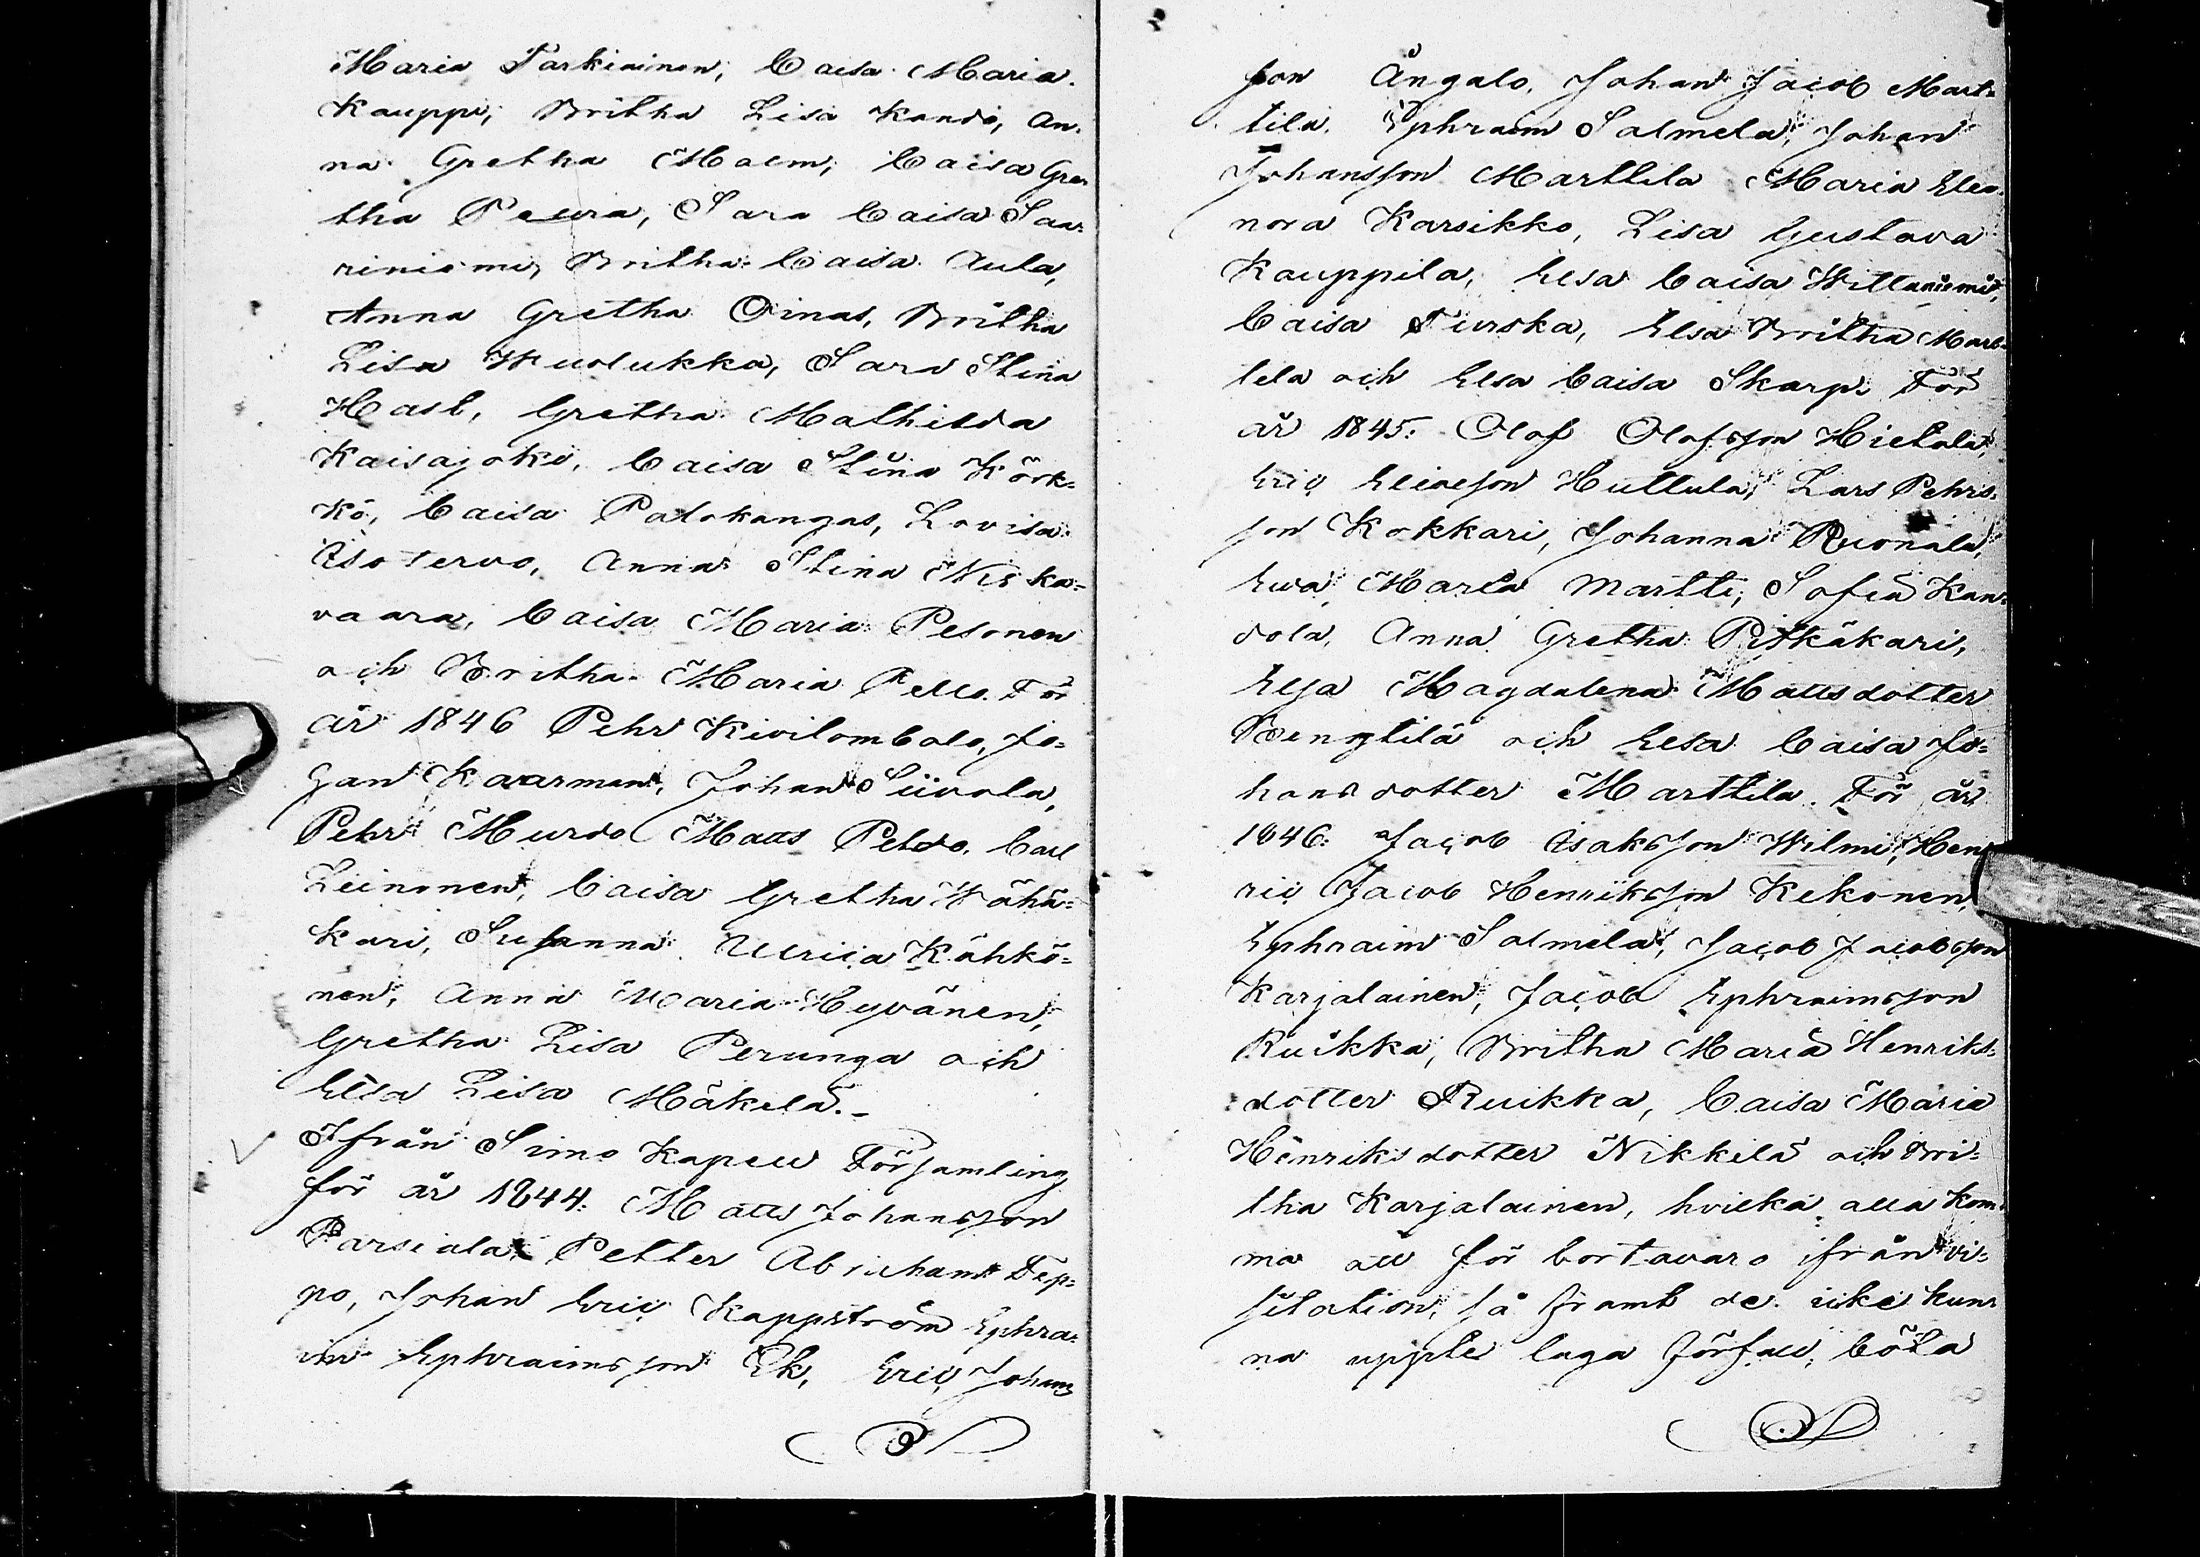 Maria Parkiainen, Caisa Maria
Kauppi, Britha Lisa Kandi, An-
na Gretha Malm, Caisa Gre-
tha Peura, Sara Caisa Saa-
riniemi, Britha Caisa Aula,
Anna Gretha Oinas, Britha
Lisa Wuolukka, Sara Stina
Hast, Gretha Mathilda
Kaisajoki, Caisa Stina Körk-
kö, Caisa Palokangas, Lovisa
Isotervo, Anna Stina Niska-
vaara, Caisa Maria Pesonen
och Britha Maria Pello. För
år 1846 Pehr Kivilombolo, Jo-
han Kaarman, Johan Siivola,
Pehr Murdo Matts Peldo, Carl
Leinonen, Caisa Gretha Wähä-
kari, Susanna Ulrica Kähkö-
nen, Anna Maria Hyvänen,
Gretha Lisa Perunga och
Elsa Lisa Mäkelä.-
Ifrån Simo Kapell Församling
för år 1844. Matts Johansson
Parsiala, Petter Abraham Tep-
po, Johan Eric Kappström Ephra-
im Ephraimsson Ek, Eric Johans
son Ångalo, Johan Jacob Mart-
tila. Ephraim Salmela, Johan
Johansson Marttila Maria Eleo-
nora Karsikko, Lisa Gustava
Kauppila, Elsa Caisa Wittaniemi,
Caisa Turska, Elsa Britha Mart-
tela och Elsa Caisa Skarp. För
år 1845. Olof Olofsson Hietala,
Eric Ericsson Huttula, Lars Pehrs-
son Kokkari, Johanna Ruonala,
Ewa Maria Martti, Sofia Kan-
dola, Anna Gretha Pitkäkari,
Elsa Magdalena Mattsdotter
Bengtilä och Elsa Caisa Jo-
hansdotter Marttila. För år
1846. Jacob Isaksson Wilmi, Hen-
ric Jacob Henriksson Kekonen,
Ephraim Salmela, Jacob Jacobsson
Karjalainen, Jacob Ephraimsson
Ruikka, Britha Maria Henriks-
dotter Ruikka, Caisa Maria
Henriksdotter Nikkilä och Bri-
tha Karjalainen, hvilka alla kom-
ma att för bortavaro ifrån vi-
sitation, så framt de icke kun-
na uppte laga förfall, böta